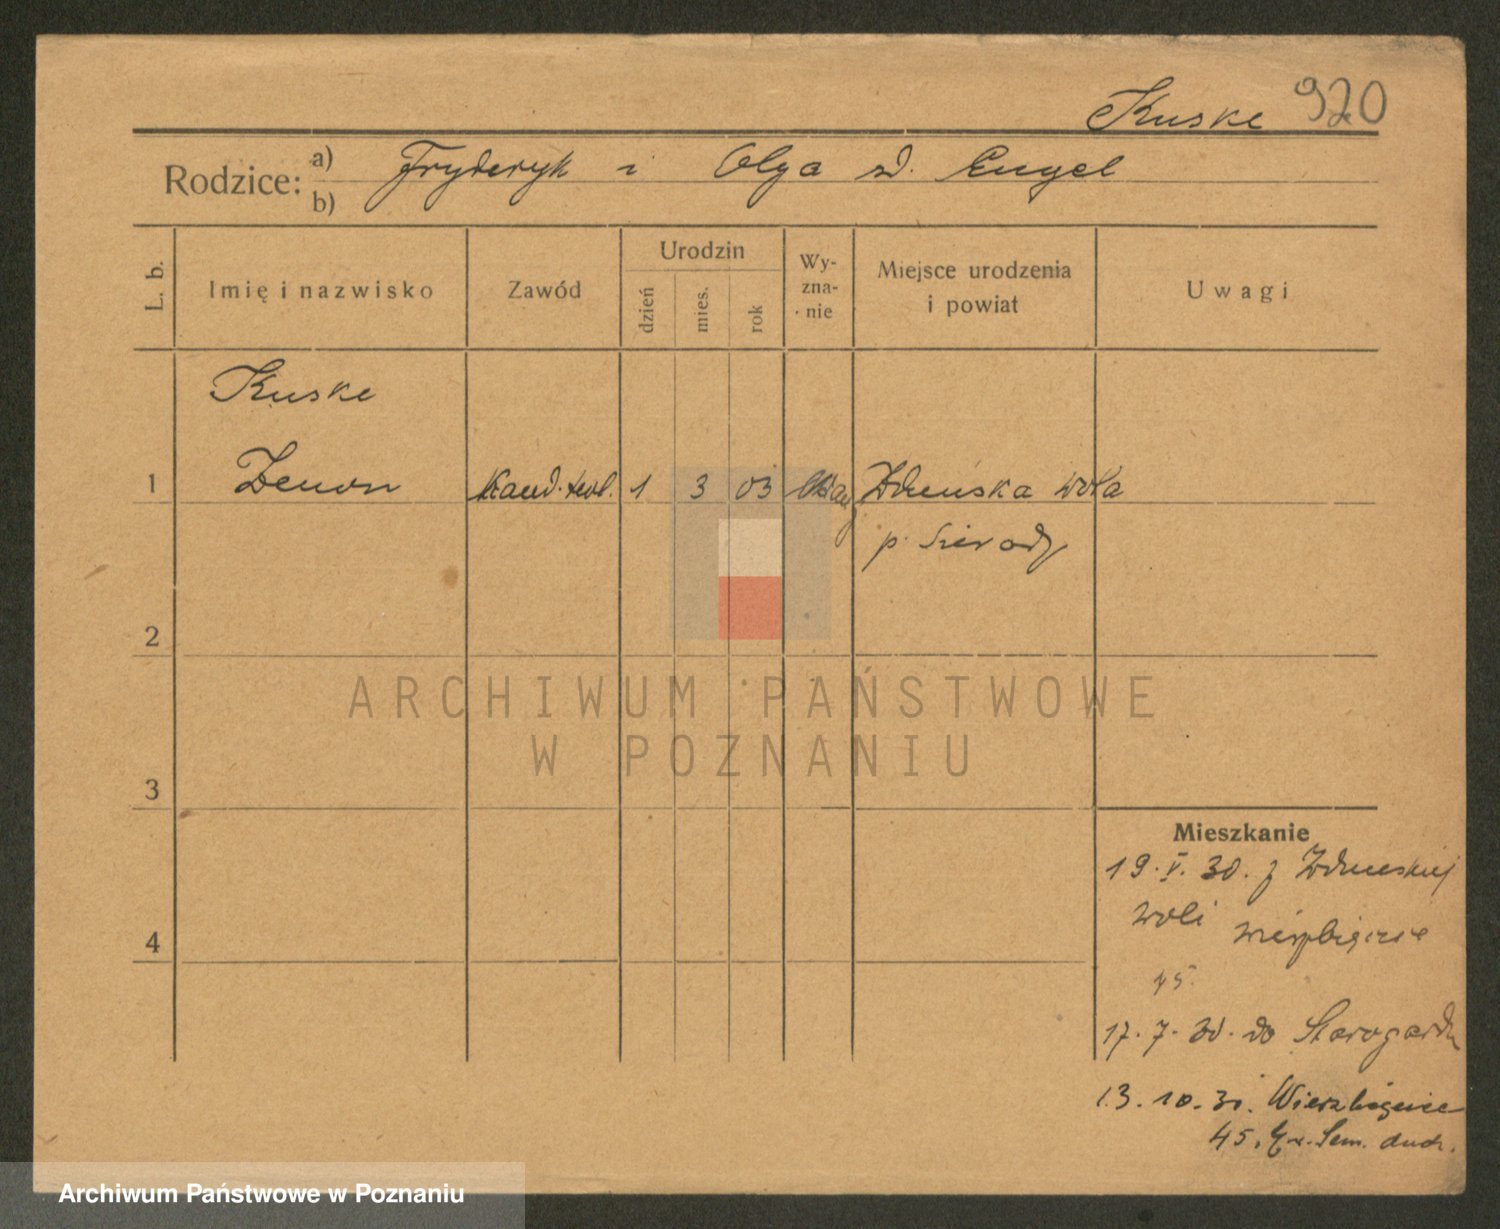 Kuske 920
Rodzice: a) Fryderyk i Olga zd. Engel
b)
L. b.
Imię i nazwisko
Zawód
Urodzin
dzień
mies.
rok
Wy-
zna-
nie
Miejsce urodzenia
i powiat
Uwagi
Kuske
1 Zenon Kand. teol. 1 3 03 Zduńska Wola
p. Sieradz
2
3
4
ARCHIWUM PAŃSTWOWE
W POZNANIU
Mieszkanie
19. V. 30. z Zduńskiej
Woli Wierzbięcice
45.
17. 7. 30. do Starogardu
13. 10. 30. Wierzbięcice
45, Sem. duch.
Archiwum Państwowe w Poznaniu